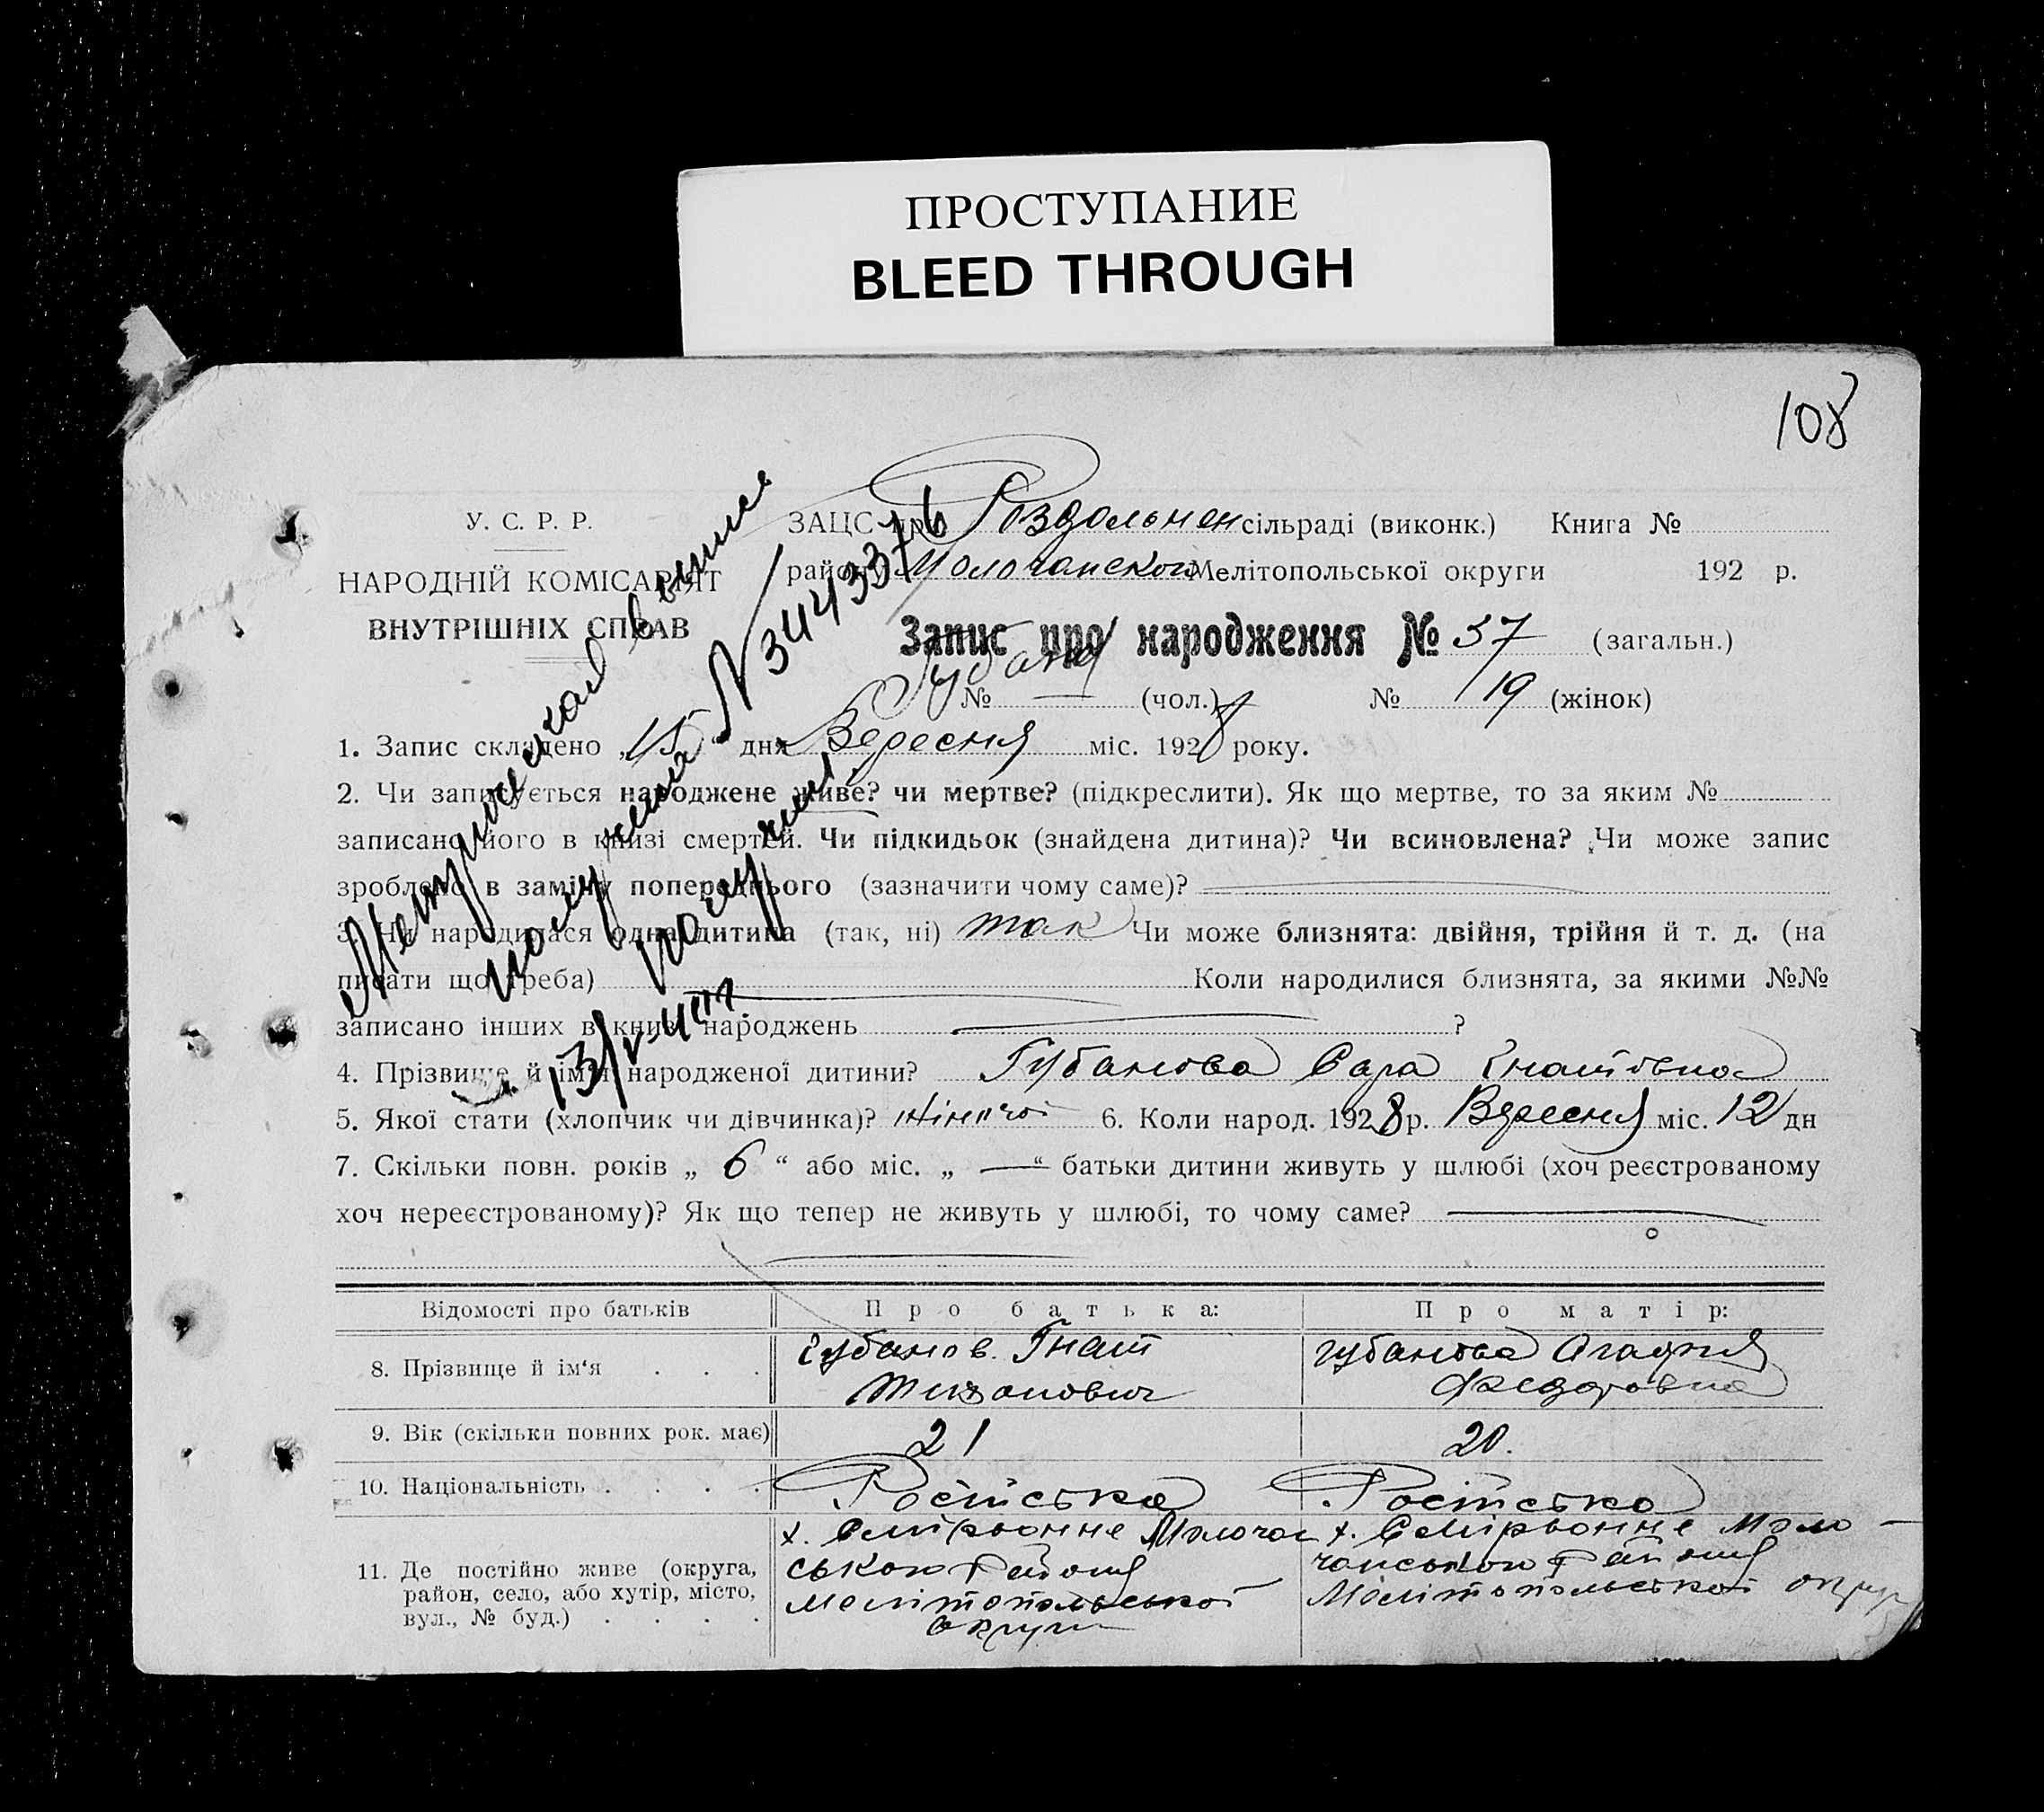 ПРОСТУПАНИЕ
BLEED THROUGH
108
У. С. Р. Р.
НАРОДНІЙ КОМІСАРІЯТ
ВНУТРІШНІХ СПРАВ
ЗАЦС при Роздольнен сільраді (виконк.) Книга №
району Молочанской Мелітопольської округи 192 р.
Запис про народження № 37 (загальн.)
№ — (чол.) № 19 (жінок)
Метрическая выпись
получена № 3443376
получил
1. Запис складено „15“ дня Вересня міс. 1928 року.
2. Чи записується народжене живе? чи мертве? (підкреслити). Як що мертве, то за яким №
записано його в книзі смертей. Чи підкидьок (знайдена дитина)? Чи всиновлена? Чи може запис
зроблено в заміну попереднього (зазначити чому саме)?
3. Чи народилася одна дитина (так, ні) так Чи може близнята: двійня, трійня й т. д. (на
писати що треба) Коли народилися близнята, за якими №№
записано інших в книзі народжень ?
4. Прізвище й ім'я народженої дитини? Губанова Сара Гнатовна
5. Якої стати (хлопчик чи дівчинка)? жіночої 6. Коли народ. 1928 р. Вересня міс. 12 дн
7. Скільки повн. років „ 6 “ або міс. „ — “ батьки дитини живуть у шлюбі (хоч реєстрованому
хоч нереєстрованому)? Як що тепер не живуть у шлюбі, то чому саме?
Відомості про батьків Про батька: Про матір:
8. Прізвище й ім‘я . . . Губанов Гнат Губанова Агафия
Федоровна
9. Вік (скільки повних рок. має) 21 20.
10. Національність . . . . Російська Російська
11. Де постійно живе (округа,
район, село, або хутір, місто,
вул., № буд.) . . . .
х. Молочан
ської Району
Мелітопольської
округи
х. Моло-
чанської Району
Мелітопольської округ